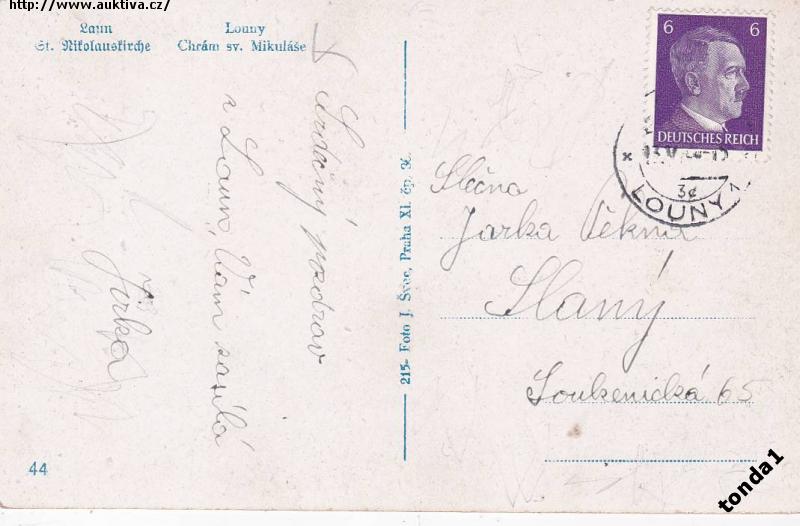 http://www.auktiva.cz/
Laun
St. Nikolauskirche
Louny
Chrám sv. Mikuláše
Srdečný pozdrav
z Laun, Vám zasílá
Jirka
215- Foto J. Švec, Praha XI. čp. 31.
6 6
DEUTSCHES REICH
LOUNY 1
3c
Slečna
Jarka
Slaný
Soukenická 65
44
tonda1